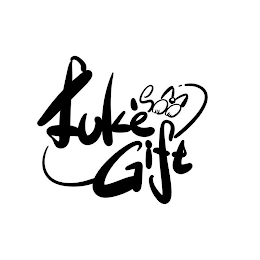 Lukè
Gift